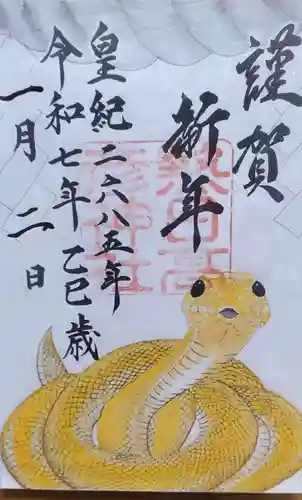 謹賀
新年
皇紀二六八五年
令和七年乙巳歳
一月二日